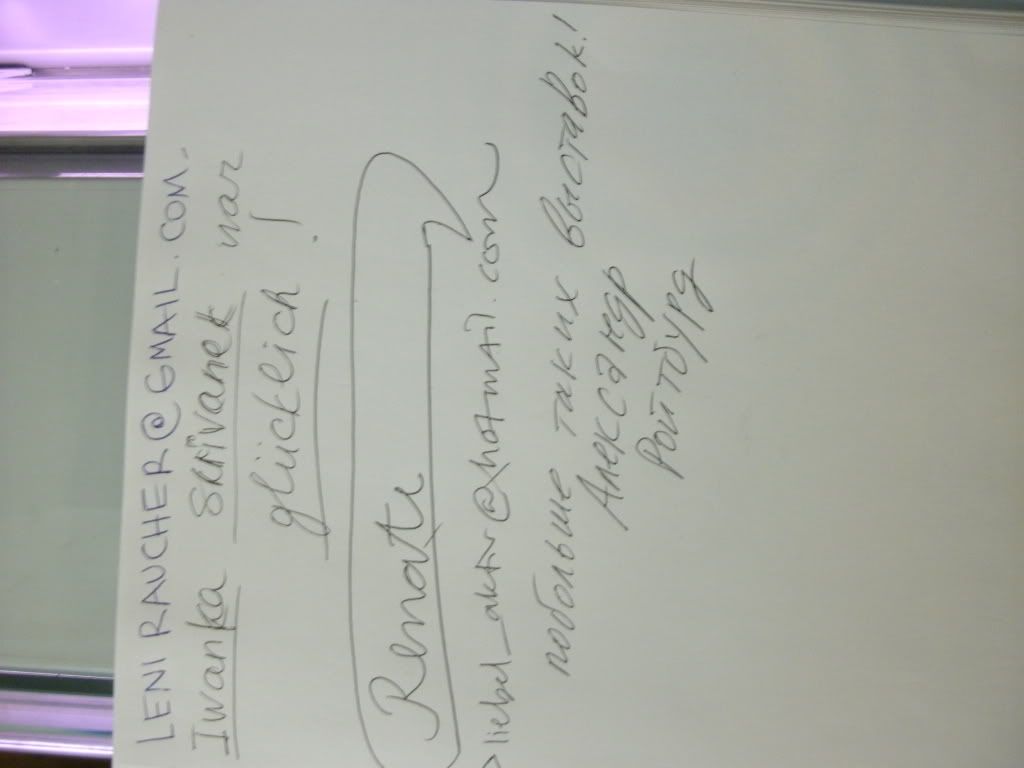 LENI RAUCHER@GMAIL.COM.
Iwanka Skrivanek war
glücklich!
Renate
liebel_aktiv@hotmail.com
побольше таких выставок!
Александр
Ройтбурд